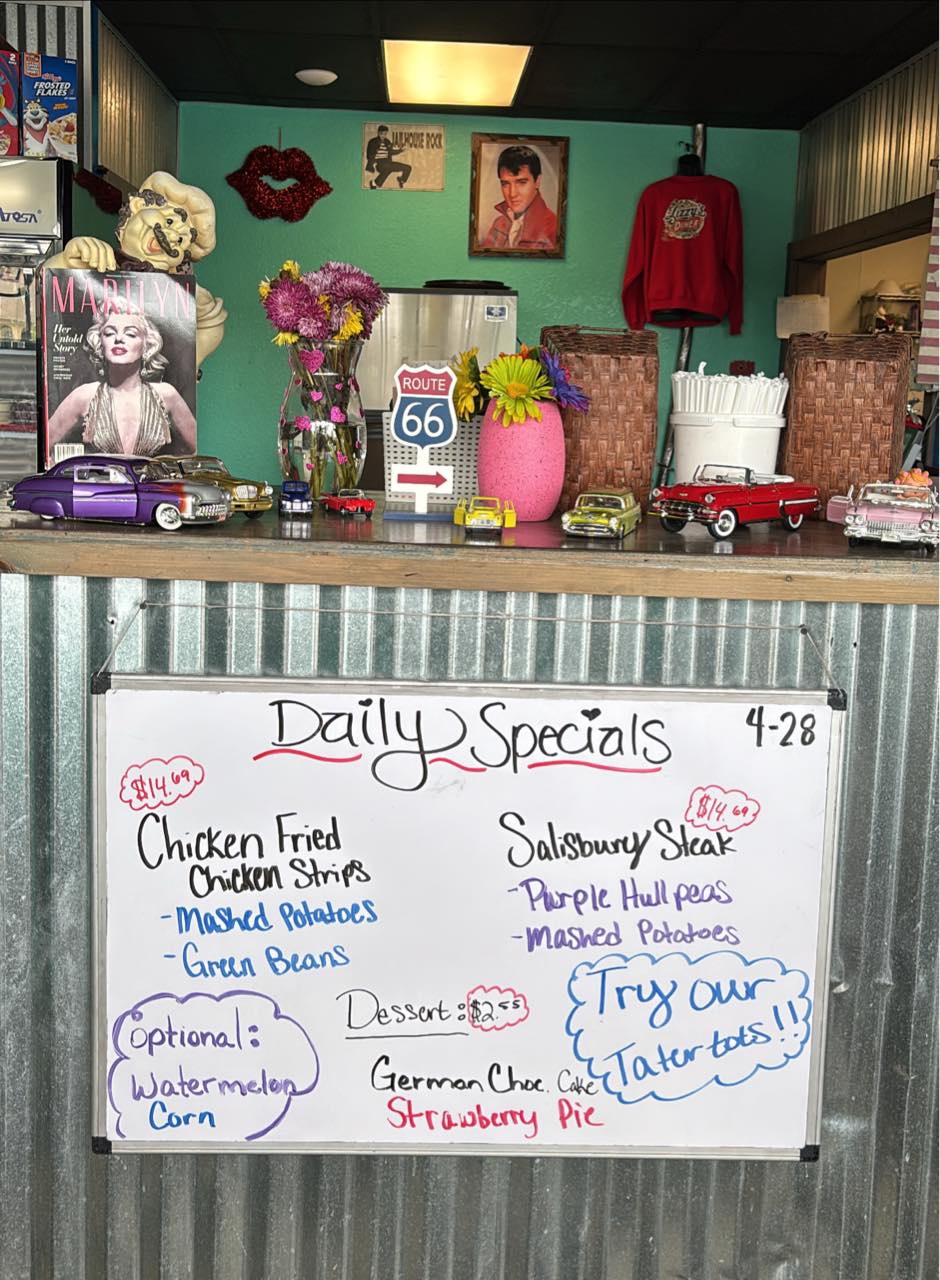 2
Kellogg's
FROSTED
FLAKES
Atosa
JAILHOUSE ROCK
Lizzy's
DINER
MARILYN
Her
Untold
Story
ROUTE
66
Daily Specials
4-28
$14.69
Chicken Fried
Chicken Strips
-Mashed Potatoes
-Green Beans
$14.69
Salisbury Steak
-Purple Hull peas
-Mashed Potatoes
Optional:
Watermelon
Corn
Dessert: $2.55
German Choc. Cake
Strawberry Pie
Try our
Tater tots!!